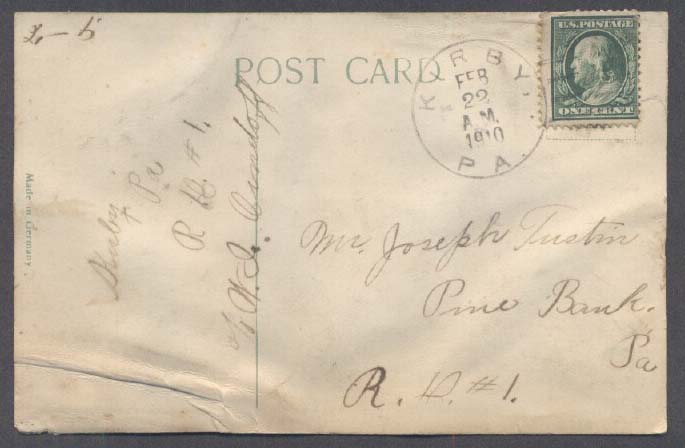 POST CARD
U.S. POSTAGE
ONE CENT
KIRBY.
FEB
22
A.M.
1910
PA.
Mr. Joseph Tustin
Pine Bank.
Pa
R. D. #1.
Kirby
Pa
R D. #1.
Made in Germany.